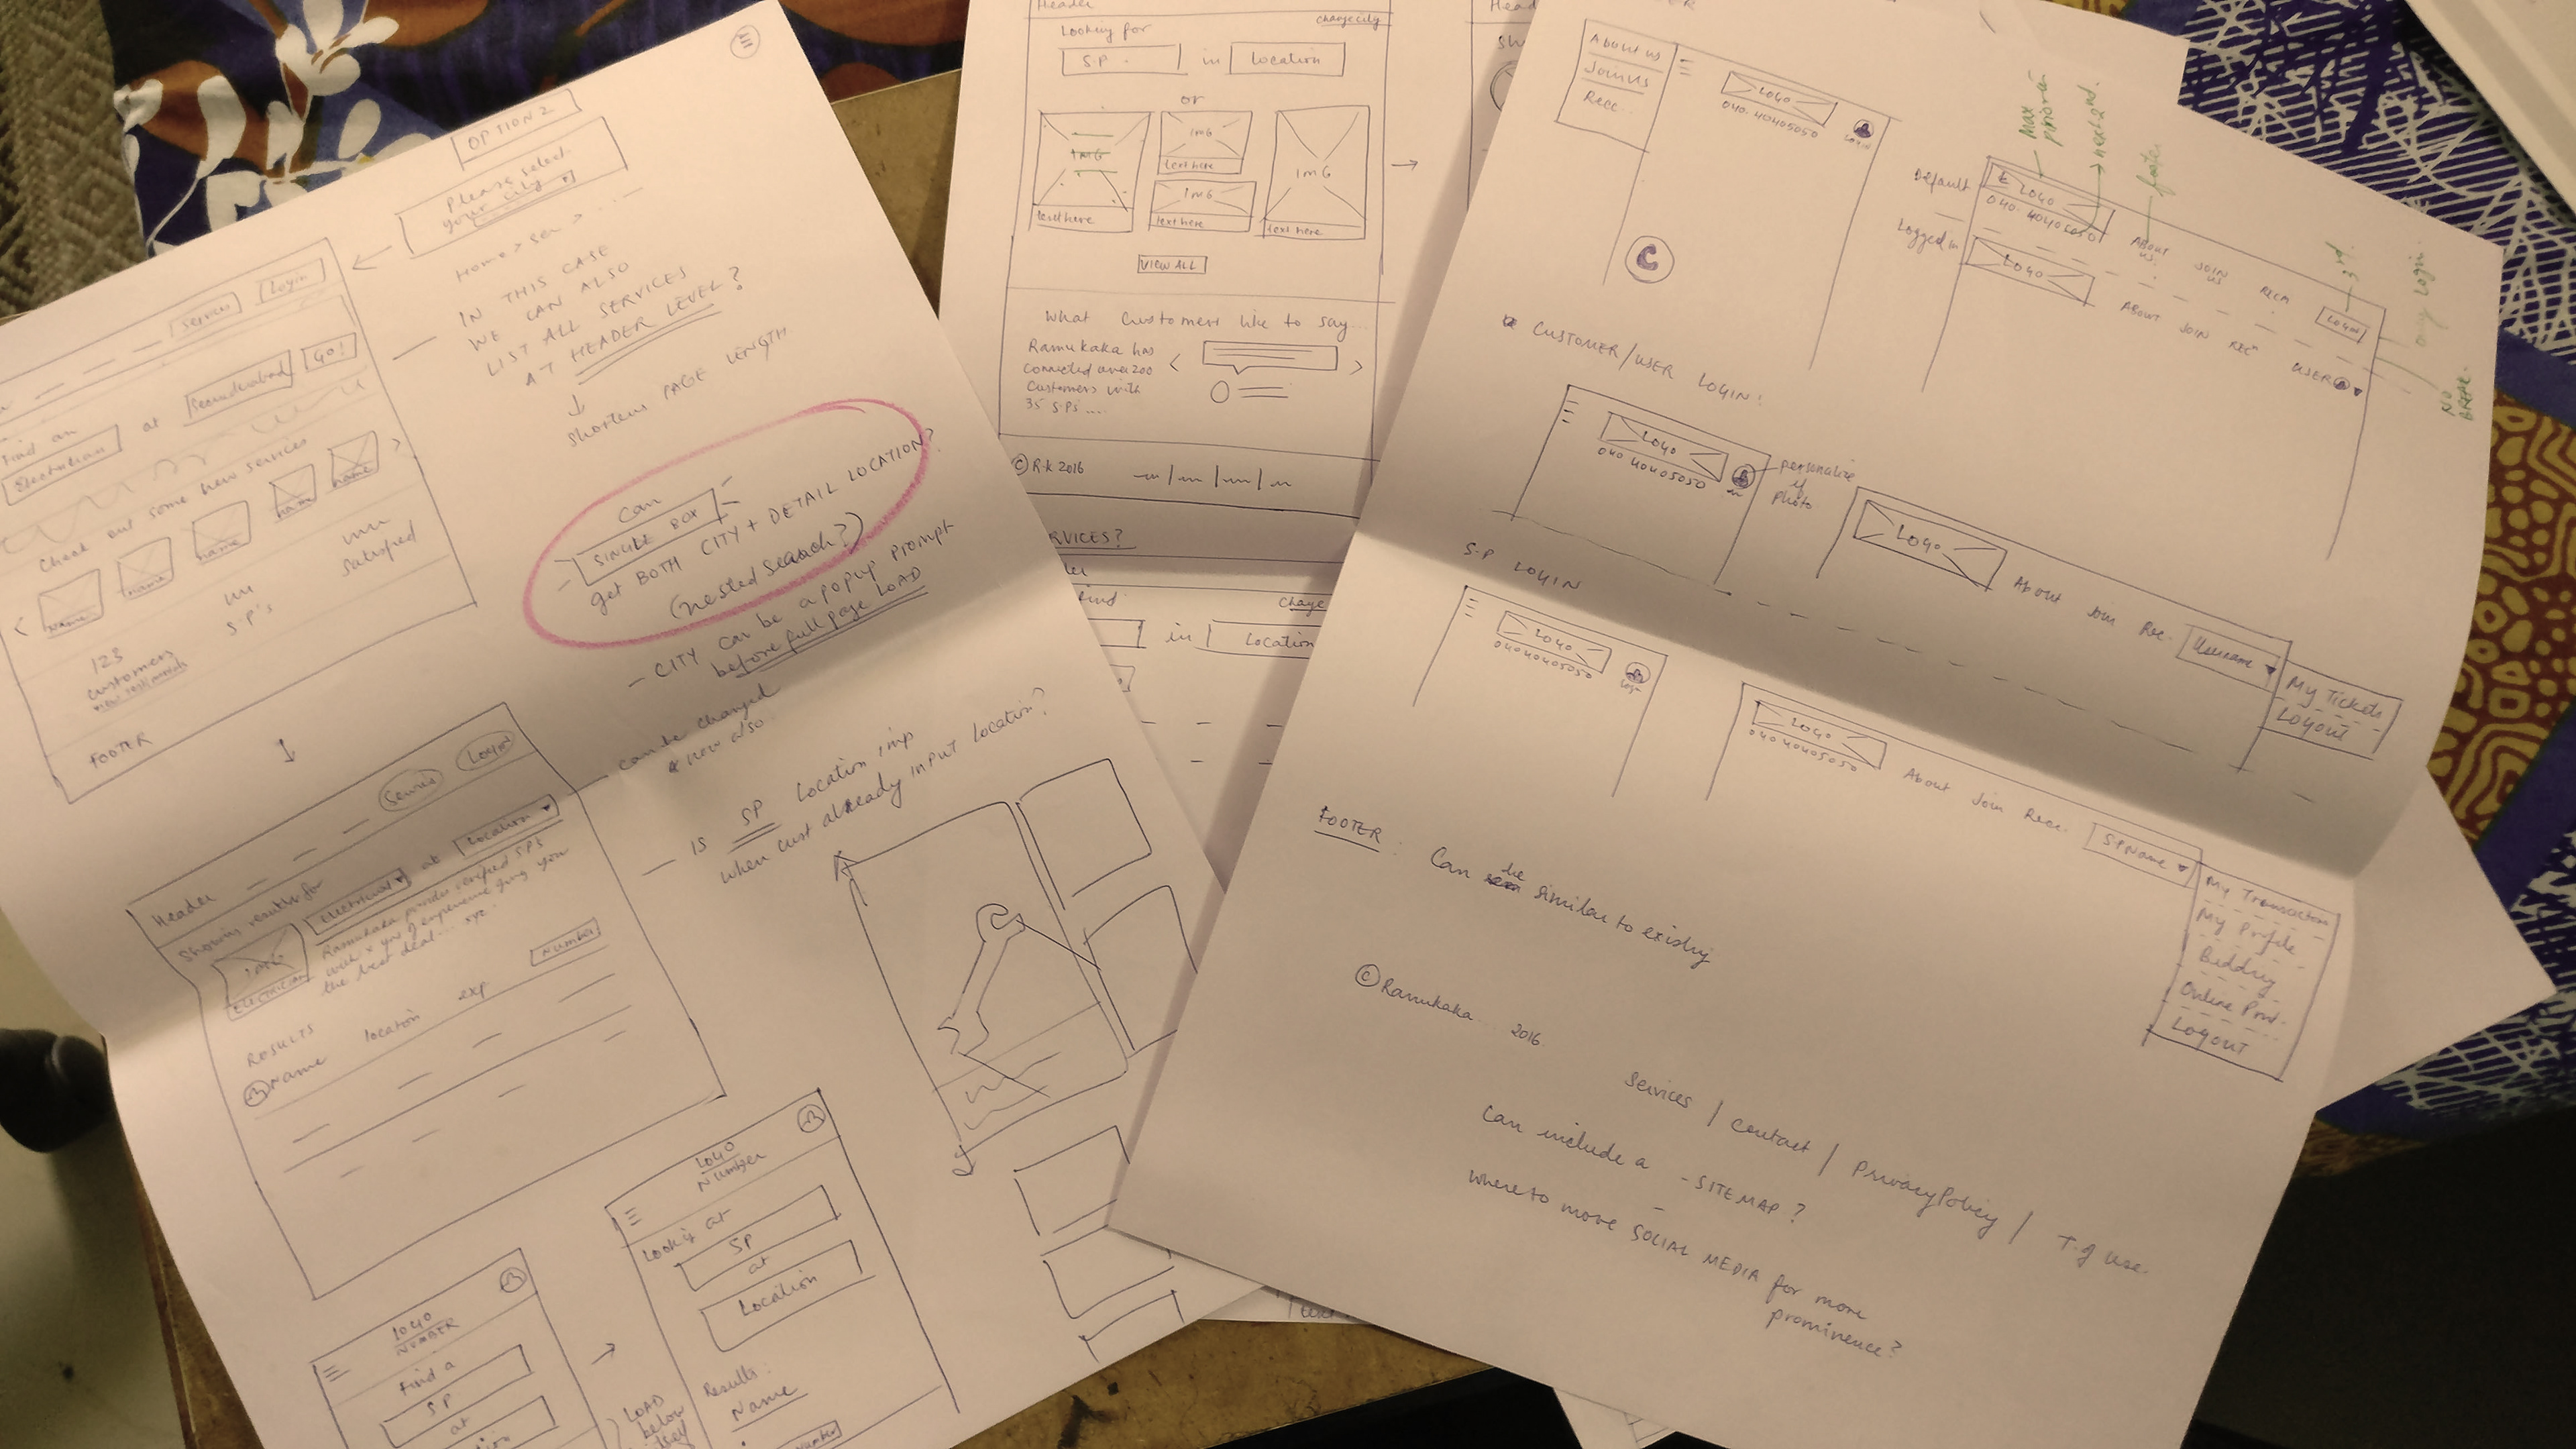 OPTION 2
Please select
your city
Home >
IN THIS CASE
WE CAN ALSO
LIST ALL SERVICES
AT HEADER LEVEL?
Shortens PAGE LENGTH
Services
Login
Find an
Electrician
at
Secunderabad
GO!
Check out some new services
Name
name
name
name
name
123
customers
S.P's
Satisfied
FOOTER
Can
SINGLE BOX
get BOTH CITY + DETAIL LOCATION?
(nested search?)
- CITY can be a popup prompt
before full page LOAD
can be changed
now also
- IS SP location imp
when cust already input location?
Header
Service
Login
Showing results for
Electrical
at
Location
IMG
ELECTRICIAN
Ramukaka provides verified SPS
with x yrs of experience giving you
the best deal...
Number
RESULTS
Name
location
exp
LOGO
NUMBER
Find a
SP
at
LOGO
Number
Looking at
SP
at
Location
Results:
Name
Number
LOAD
below
itself
Header
change city
Looking for
S.P.
in
Location
or
IMG
text here
IMG
text here
IMG
text here
IMG
text here
VIEW ALL
What customers like to say...
Ramukaka has
connected over 200
customers with
35 S.P.s ....
© R.K 2016
RVICES?
in
Location
Head
About us
Join us
Recc.
LOGO
040. 40405050
LOGIN
C
Max
next 2nd.
3rd.
only login.
NO
BREAK.
Default
Logged in
LOGO
040. 40405050
ABOUT
US
JOIN
US
RECM
LOGIN
LOGO
ABOUT
JOIN
REC
USER
CUSTOMER/USER LOGIN:
LOGO
040 40405050
personalize
if
photo
LOGO
About
Join
Rec.
Username
My Tickets
LOGOUT
S.P LOGIN
LOGO
04040405050
LOGO
040 40405050
About
Join
Recc.
S.P Name
My Transaction
My Profile
Bidding
Online Prod.
Logout
FOOTER : Can be similar to existing
© Ramukaka 2016
Services / Contact / Privacy Policy / T. of use.
Can include a - SITEMAP?
Where to move SOCIAL MEDIA for more
prominence?